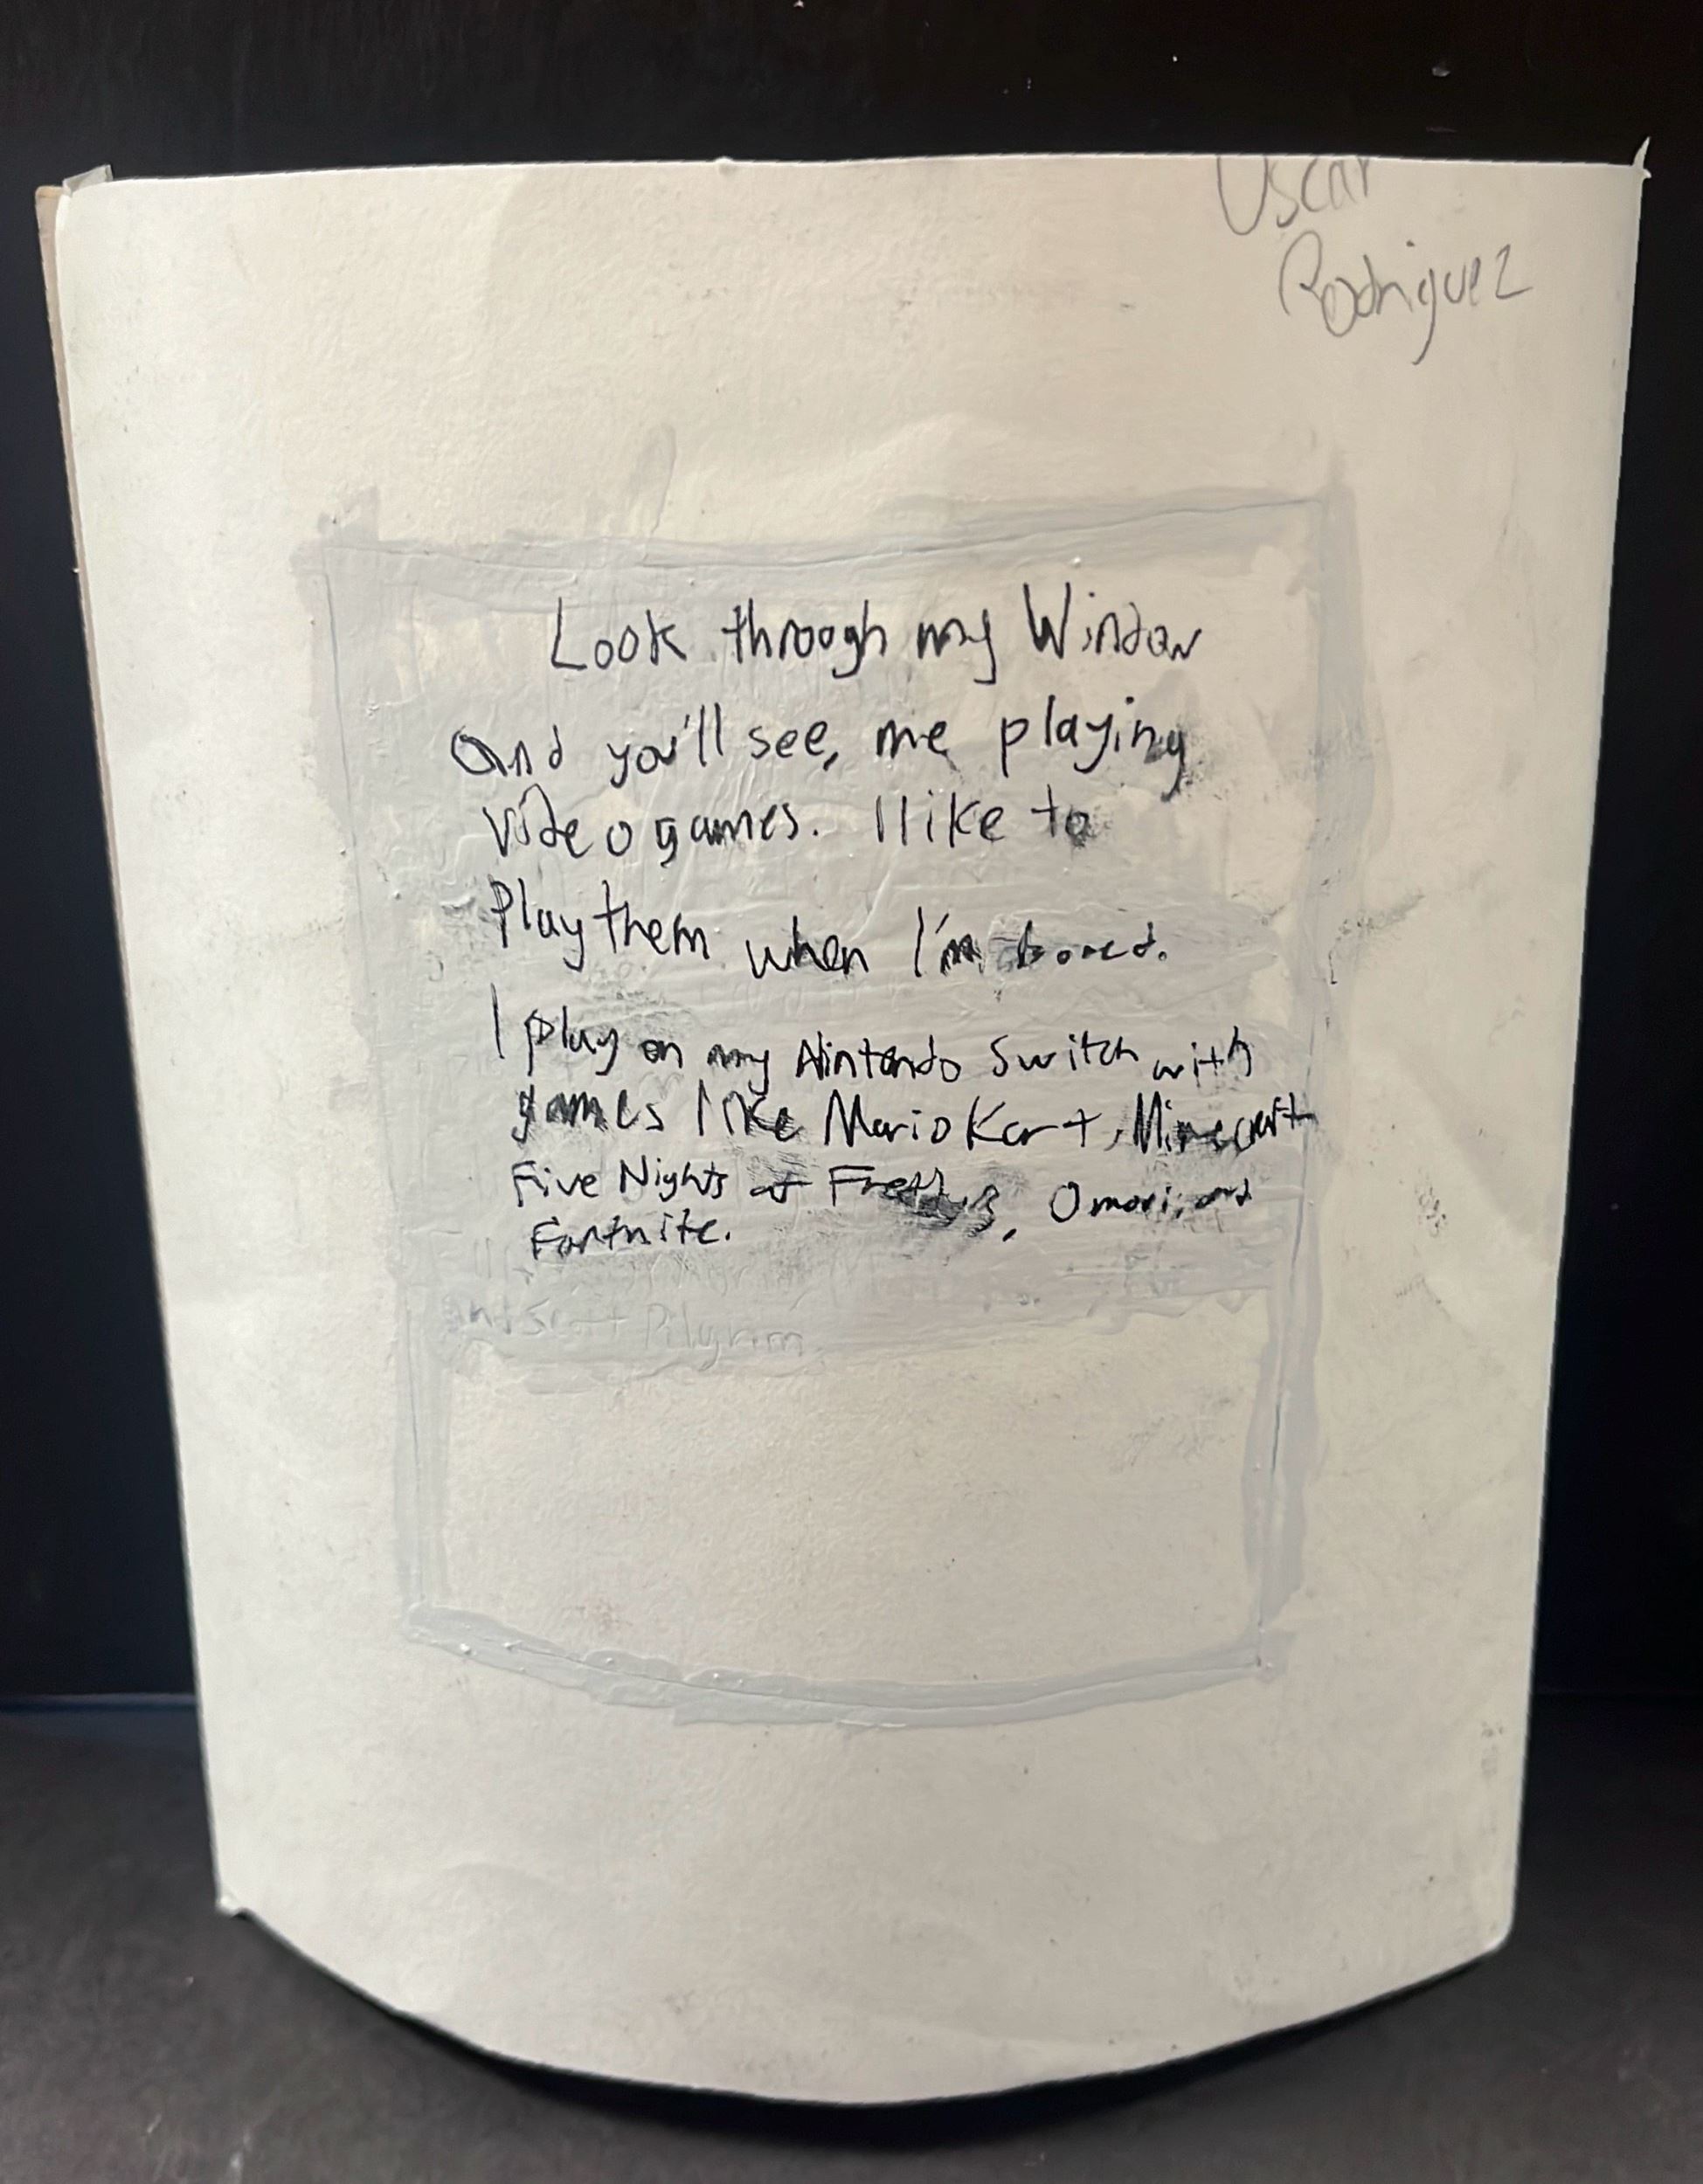 Oscar
Rodriguez
Look through my Window
and you'll see, me playing
video games. I like to
Play them when I'm bored.
I play on my Nintendo Switch with
games like Mario Kart, Minecraft
Five Nights at Freddy's, Omori, and
Fortnite.
and Scott Pilgrim